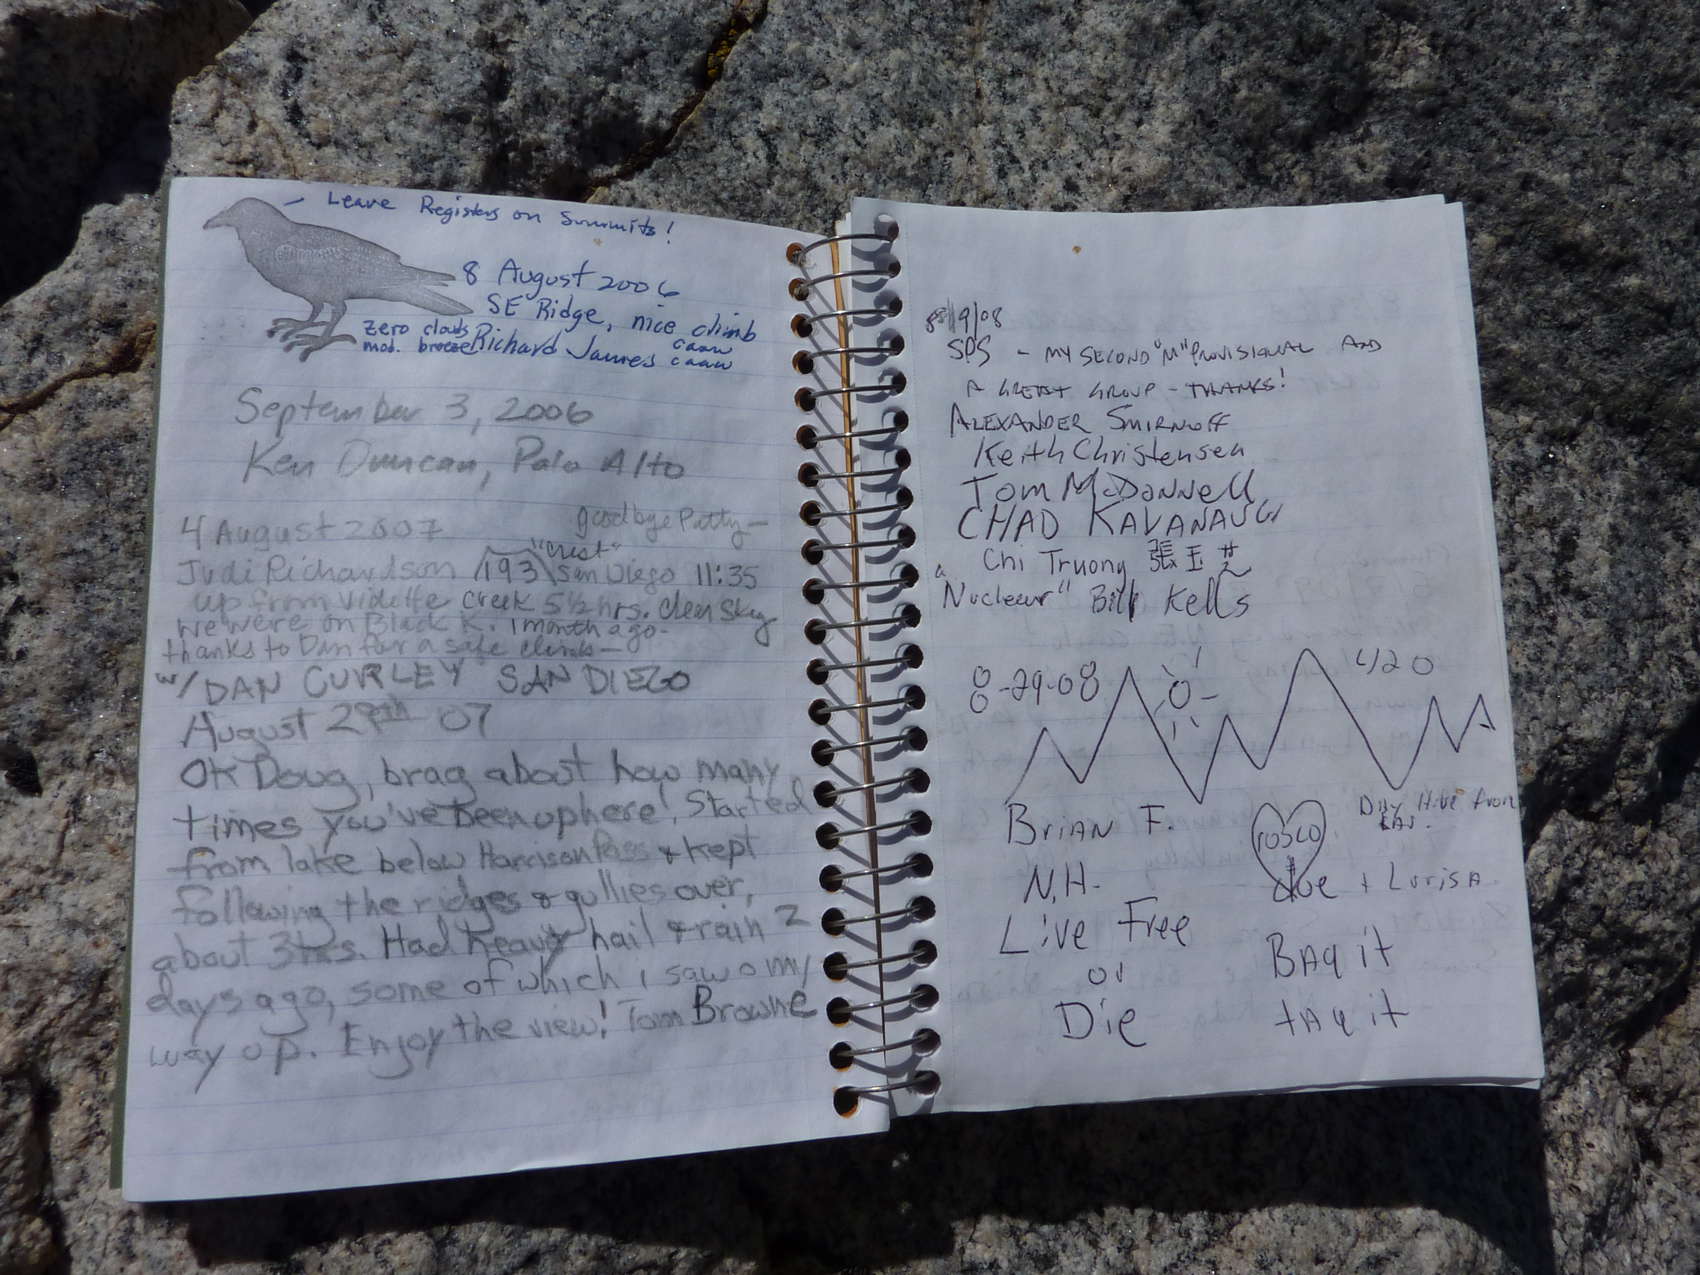 Leave Registers on Summits!
8 August 2006
SE Ridge, nice climb
zero clouds
mod. breeze Richard James caaw
caaw
September 3, 2006
Ken Duncan, Palo Alto
goodbye Patty—
4 August 2007
"crest"
Judi Richardson 193 San Diego 11:35
up from Vidette Creek 5½ hrs. clear sky
we were on Black K. 1 month ago.
thanks to Dan for a safe climb—
w/ DAN CURLEY SAN DIEGO
August 29th 07
OK Doug, brag about how many
times you've been up here! Started
from lake below Harrison Pass & kept
following the ridges & gullies over,
about 3 hrs. Had heavy hail & rain 2
days ago, some of which I saw o my
way up. Enjoy the view! Tom Browne
8/9/08
SPS - MY SECOND "M" PROVISIONAL AND
A GREAT GROUP - THANKS!
ALEXANDER SMIRNOFF
Keith Christensen
Tom McDonnell
CHAD KAVANAUGH
Chi Truong 張玉
"Nuclear" Bill Kells
8-29-08
420
BRIAN F.
N.H.
Live Free
or
Die
rosco
Day Hike from
Joe + Larisa
BAg it
tAg it